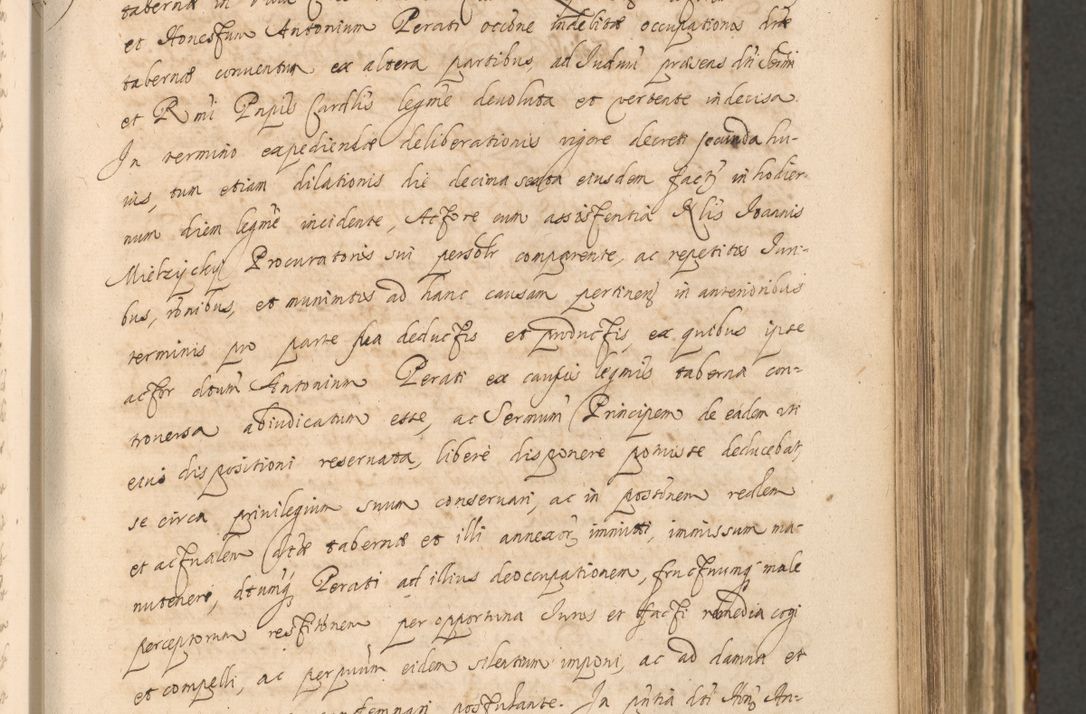 tabernæ in
et Honestum Antonium Perati oc͠one indebitæ occupationis d͠tæ
tabernæ conventum ex altera partibus, ad Judiu͠ præsens d͠ni Sermi
et R͠mi Pnpis Cardlis legme devoluta et vertente indecisa.
In termino expediendæ deliberationis vigore decreti secunda hu-
ius, tum etiam dilationis die decima sexta eiusdem factȝ in hodier-
num diem legme incidente, Actore cum assistentia Nlis Joannis
Mietzijckÿ Procuratoris sui personlr comparente, ac repetitis Juri-
bus, ro͠nibus, et munimtis ad hanc causam pertinenȝ in anterioribus
terminis pro parte sua deductis et productis, ex quibus ipse
actor dtum Antonium Perati ex causis legmis taberna con-
troversa abiudicatum esse, ac Sermum Principem de eadem uti
eius dispositioni reservata, liberè disponere potuisse deducebat,
se circa privilegium suum conservari, ac in postonem realem
et actualem d͠tæ tabernæ et illi annexorȝ immitti, immissum ma-
nutenere, dtumqȝ Perati ad illius deoccupationem, fructuumqȝ male
perceptorum restitonem per opportuna Juris et facti remedia cogi
et compelli, ac perpuum eidem silentium imponi, ac ad damna et
postulante. In pntia dti Honȝ An-